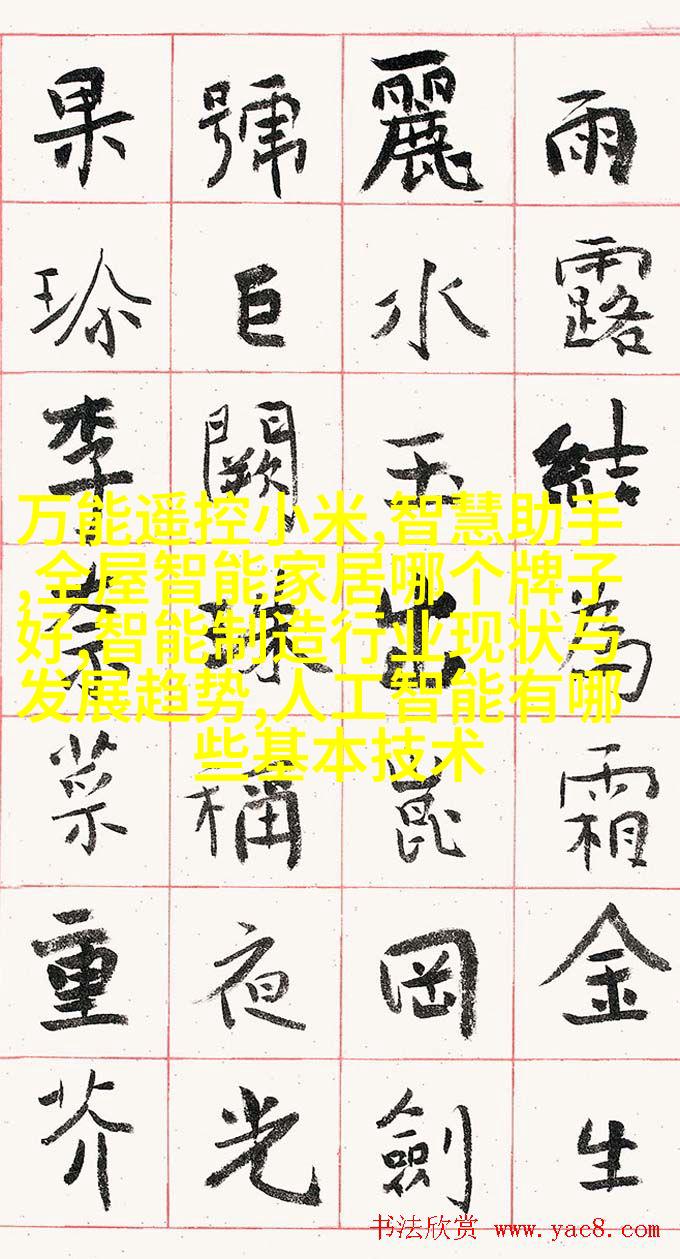 雨露結為霜金生
麗水玉出崑岡劍
號巨闕珠稱夜光
果珎李柰菜重芥
万能遥控小米,智慧助手
,全屋智能家居哪个牌子
好,智能制造行业现状与
发展趋势,人工智能有哪
些基本技术
书法欣赏 www.yac8.com